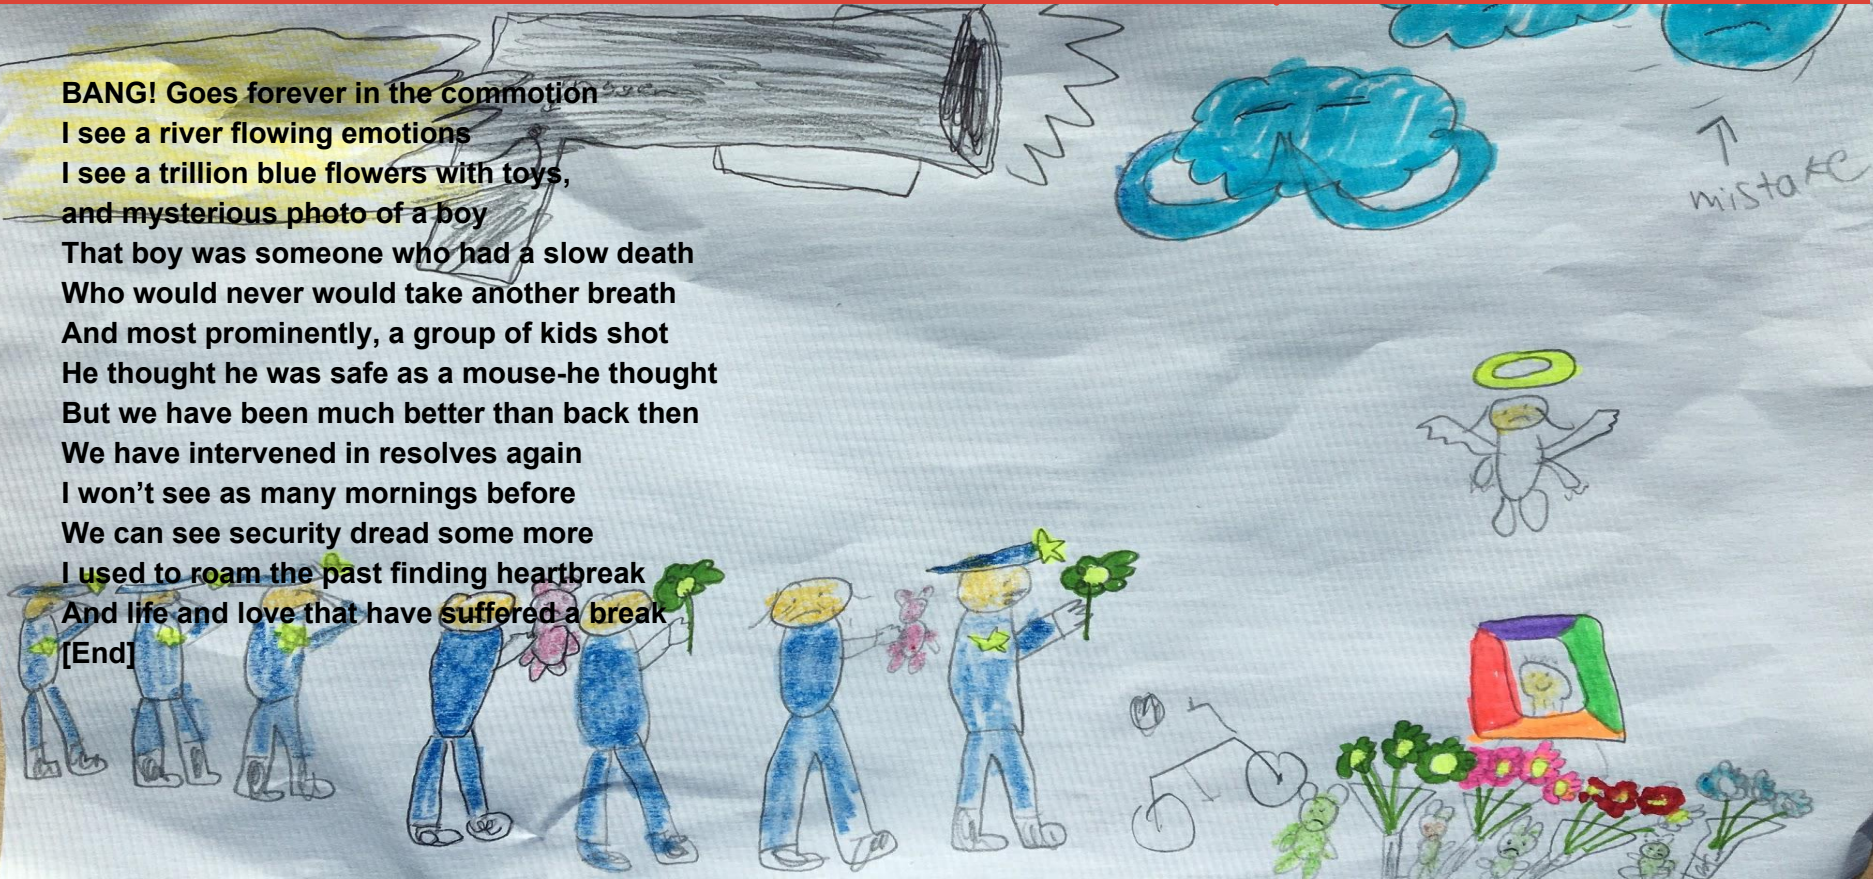 BANG! Goes forever in the commotion
I see a river flowing emotions
I see a trillion blue flowers with toys,
and mysterious photo of a boy
That boy was someone who had a slow death
Who would never would take another breath
And most prominently, a group of kids shot
He thought he was safe as a mouse-he thought
But we have been much better than back then
We have intervened in resolves again
I won’t see as many mornings before
We can see security dread some more
I used to roam the past finding heartbreak
And life and love that have suffered a break
[End]
mistake